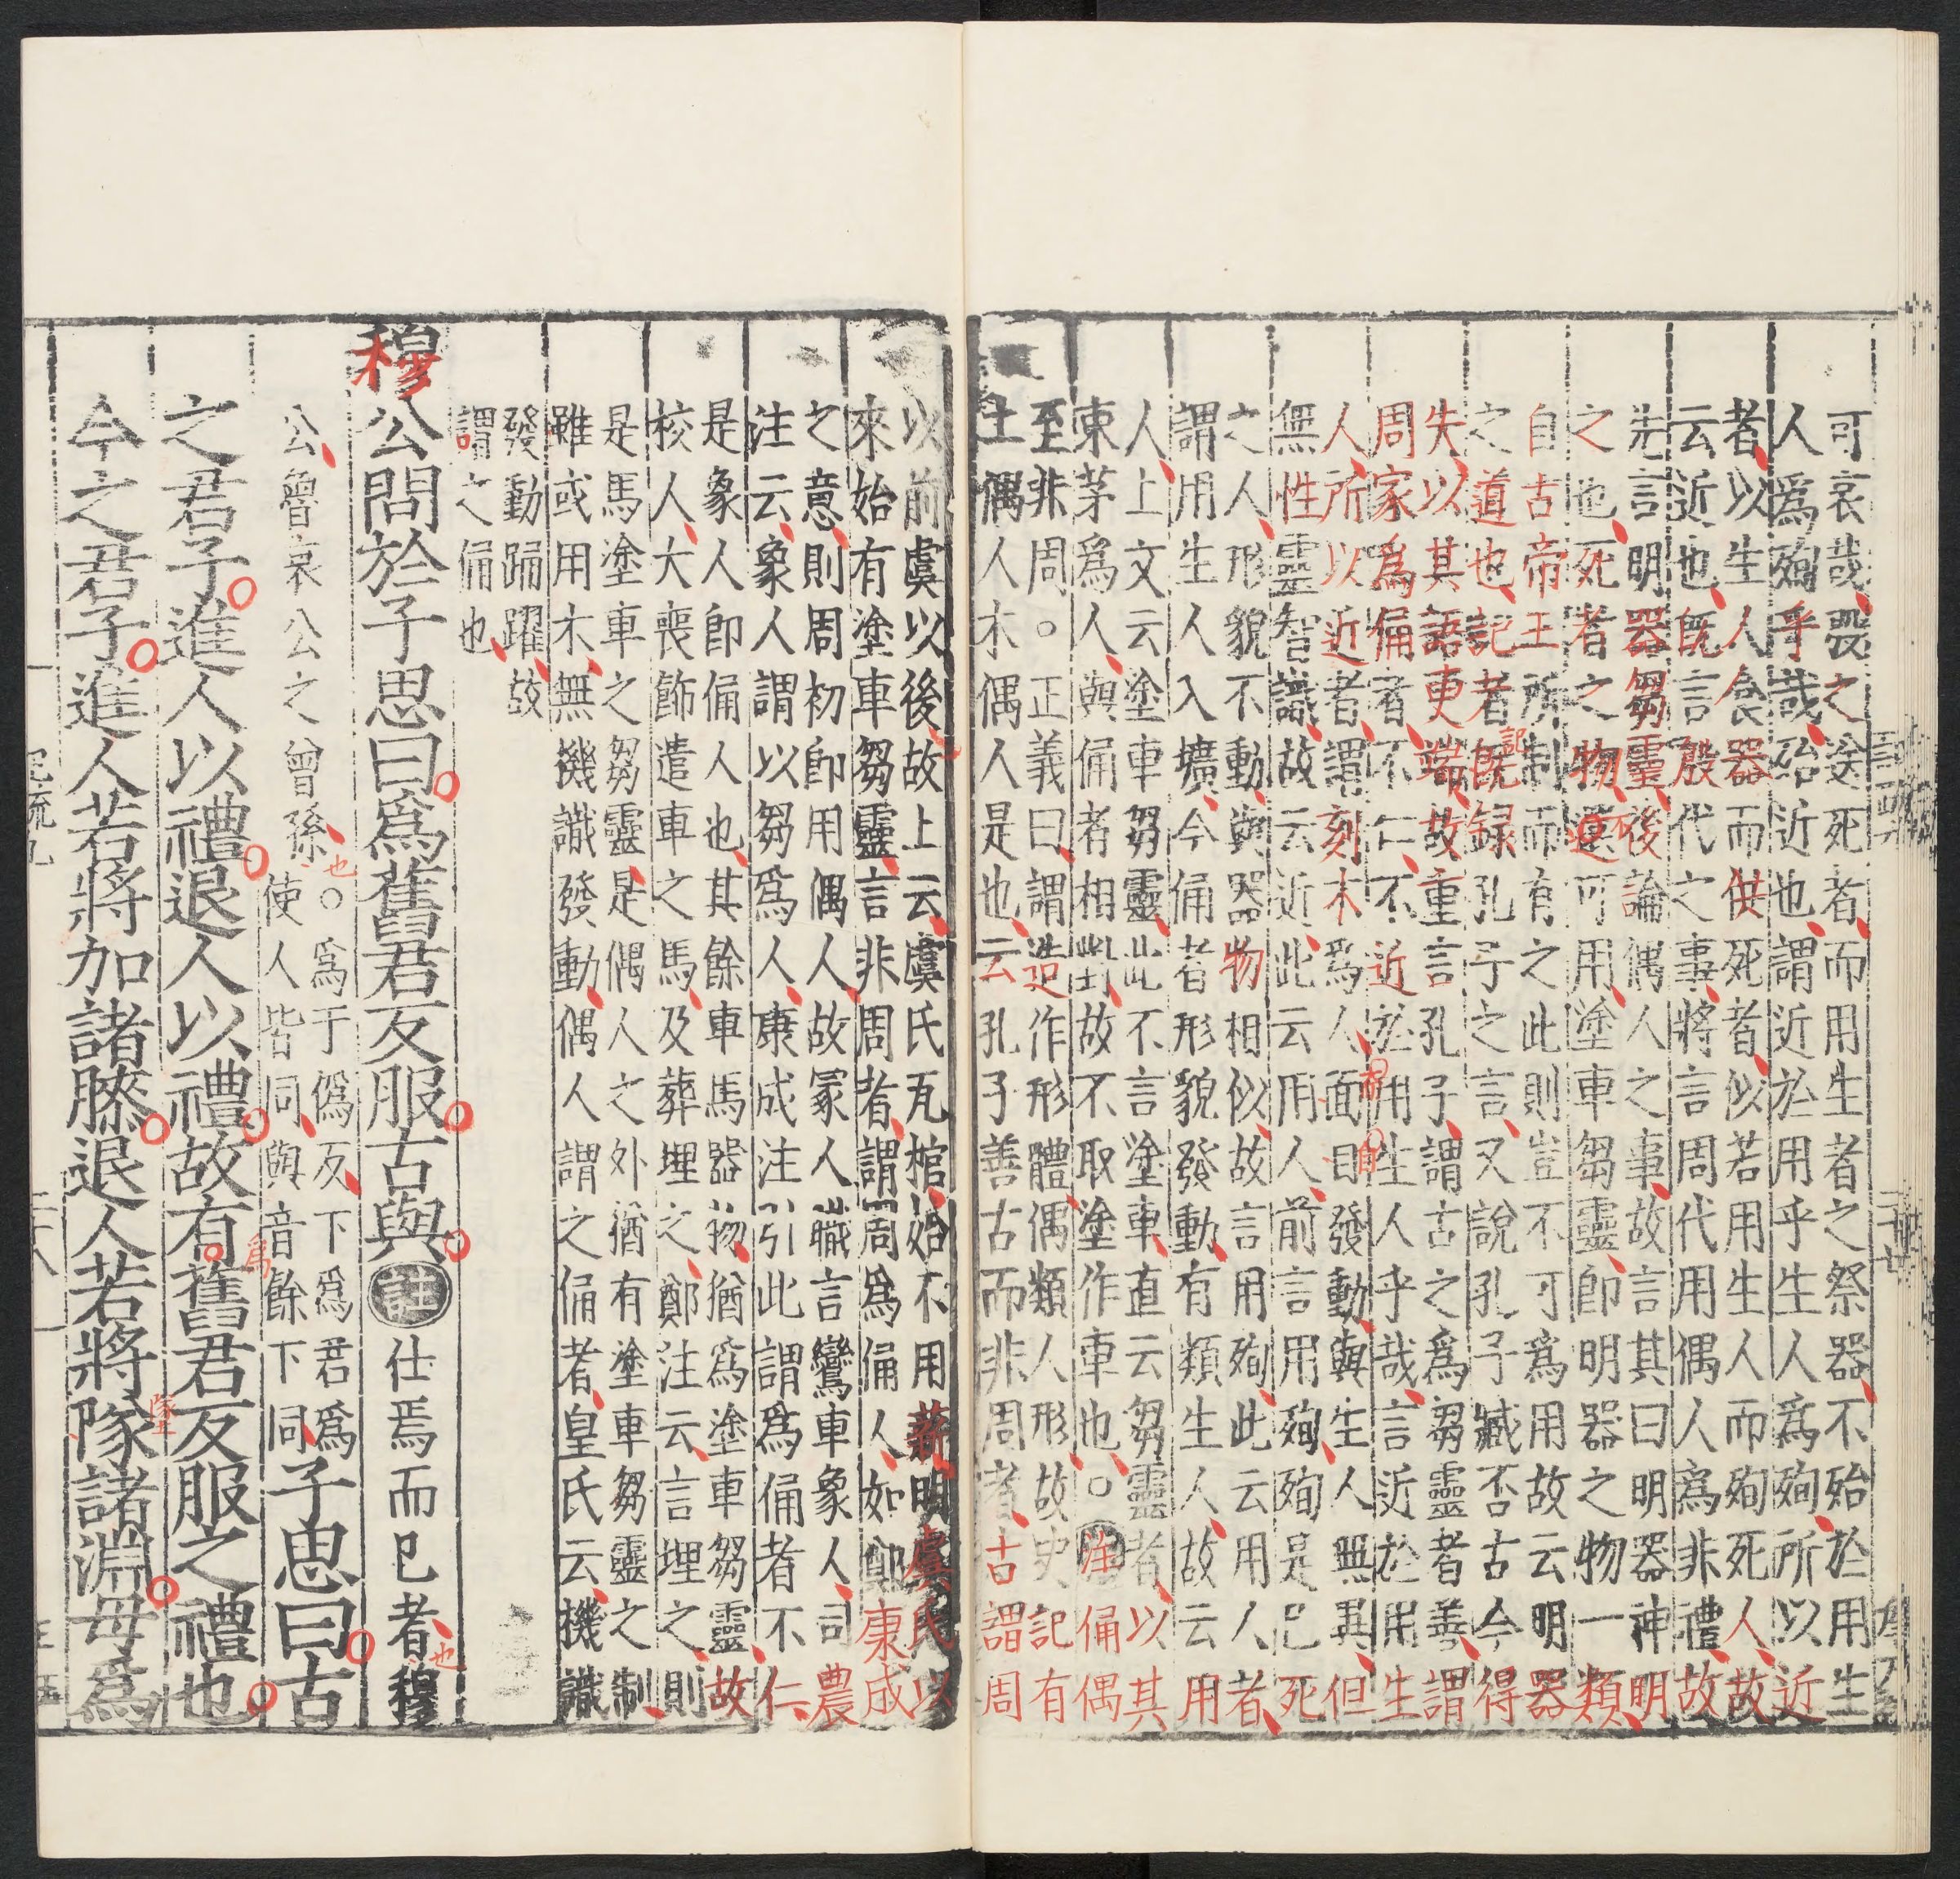 可哀哉喪之送死者而用生者之祭器不殆於用生
人爲殉乎哉殆近也謂近於用乎生人爲殉所以近
者以生人食器而供死者似若用生人而殉死人故
云近也旣言殷代之事將言周代用偶人爲非禮故
先言明器芻靈後論偶人之事故言其曰明器神明
之也死者之物還可用塗車芻靈卽明器之物一類
自古帝王所制而有之此則豈不可爲用故云明器
之道也記者旣録孔子之言又說孔子臧否古今得
失以其語更端故重言孔子謂古之爲芻靈者善謂
周家爲俑者不仁不近於用生人乎哉言近於用生
人所以近者謂刻木爲人面目發動與生人無異但
無性靈智識故云近此云用人前言用殉殉是已死
之人形貌不動與器物相似故言用殉此云用人者
謂用生人入壙今俑者形貌發動有類生人故云用
人上文云塗車芻靈此不言塗車直云芻靈者以其
東茅爲人與俑者相對故不取塗作車也○注俑偶
至非周○正義曰謂造作形體偶類人形故史記有
土偶人木偶人是也云孔子善古而非周者古謂周
以前虞以後故上云虞氏瓦棺始不用薪明虞氏以
來始有塗車芻靈言非周者謂周爲俑人如鄭康成
之意則周初卽用偶人故冢人職言鸞車象人司農
注云象人謂以芻爲人康成注引此謂爲俑者不仁
是象人卽俑人也其餘車馬器物猶爲塗車芻靈故
校人大喪飾遣車之馬及葬埋之鄭注云言埋之則
是馬塗車之芻靈是偶人之外猶有塗車芻靈之制
雖或用木無機識發動偶人謂之俑者皇氏云機識
發動踊躍故
謂之俑也
穆公問於子思曰爲舊君反服古與註仕焉而已者也穆
公魯哀公之曾孫也○爲于僞反下爲君爲
使人皆同與音餘下同子思曰古
之君子進人以禮退人以禮故有爲舊君反服之禮也
今之君子進人若將加諸膝退人若將隊諸淵毋爲